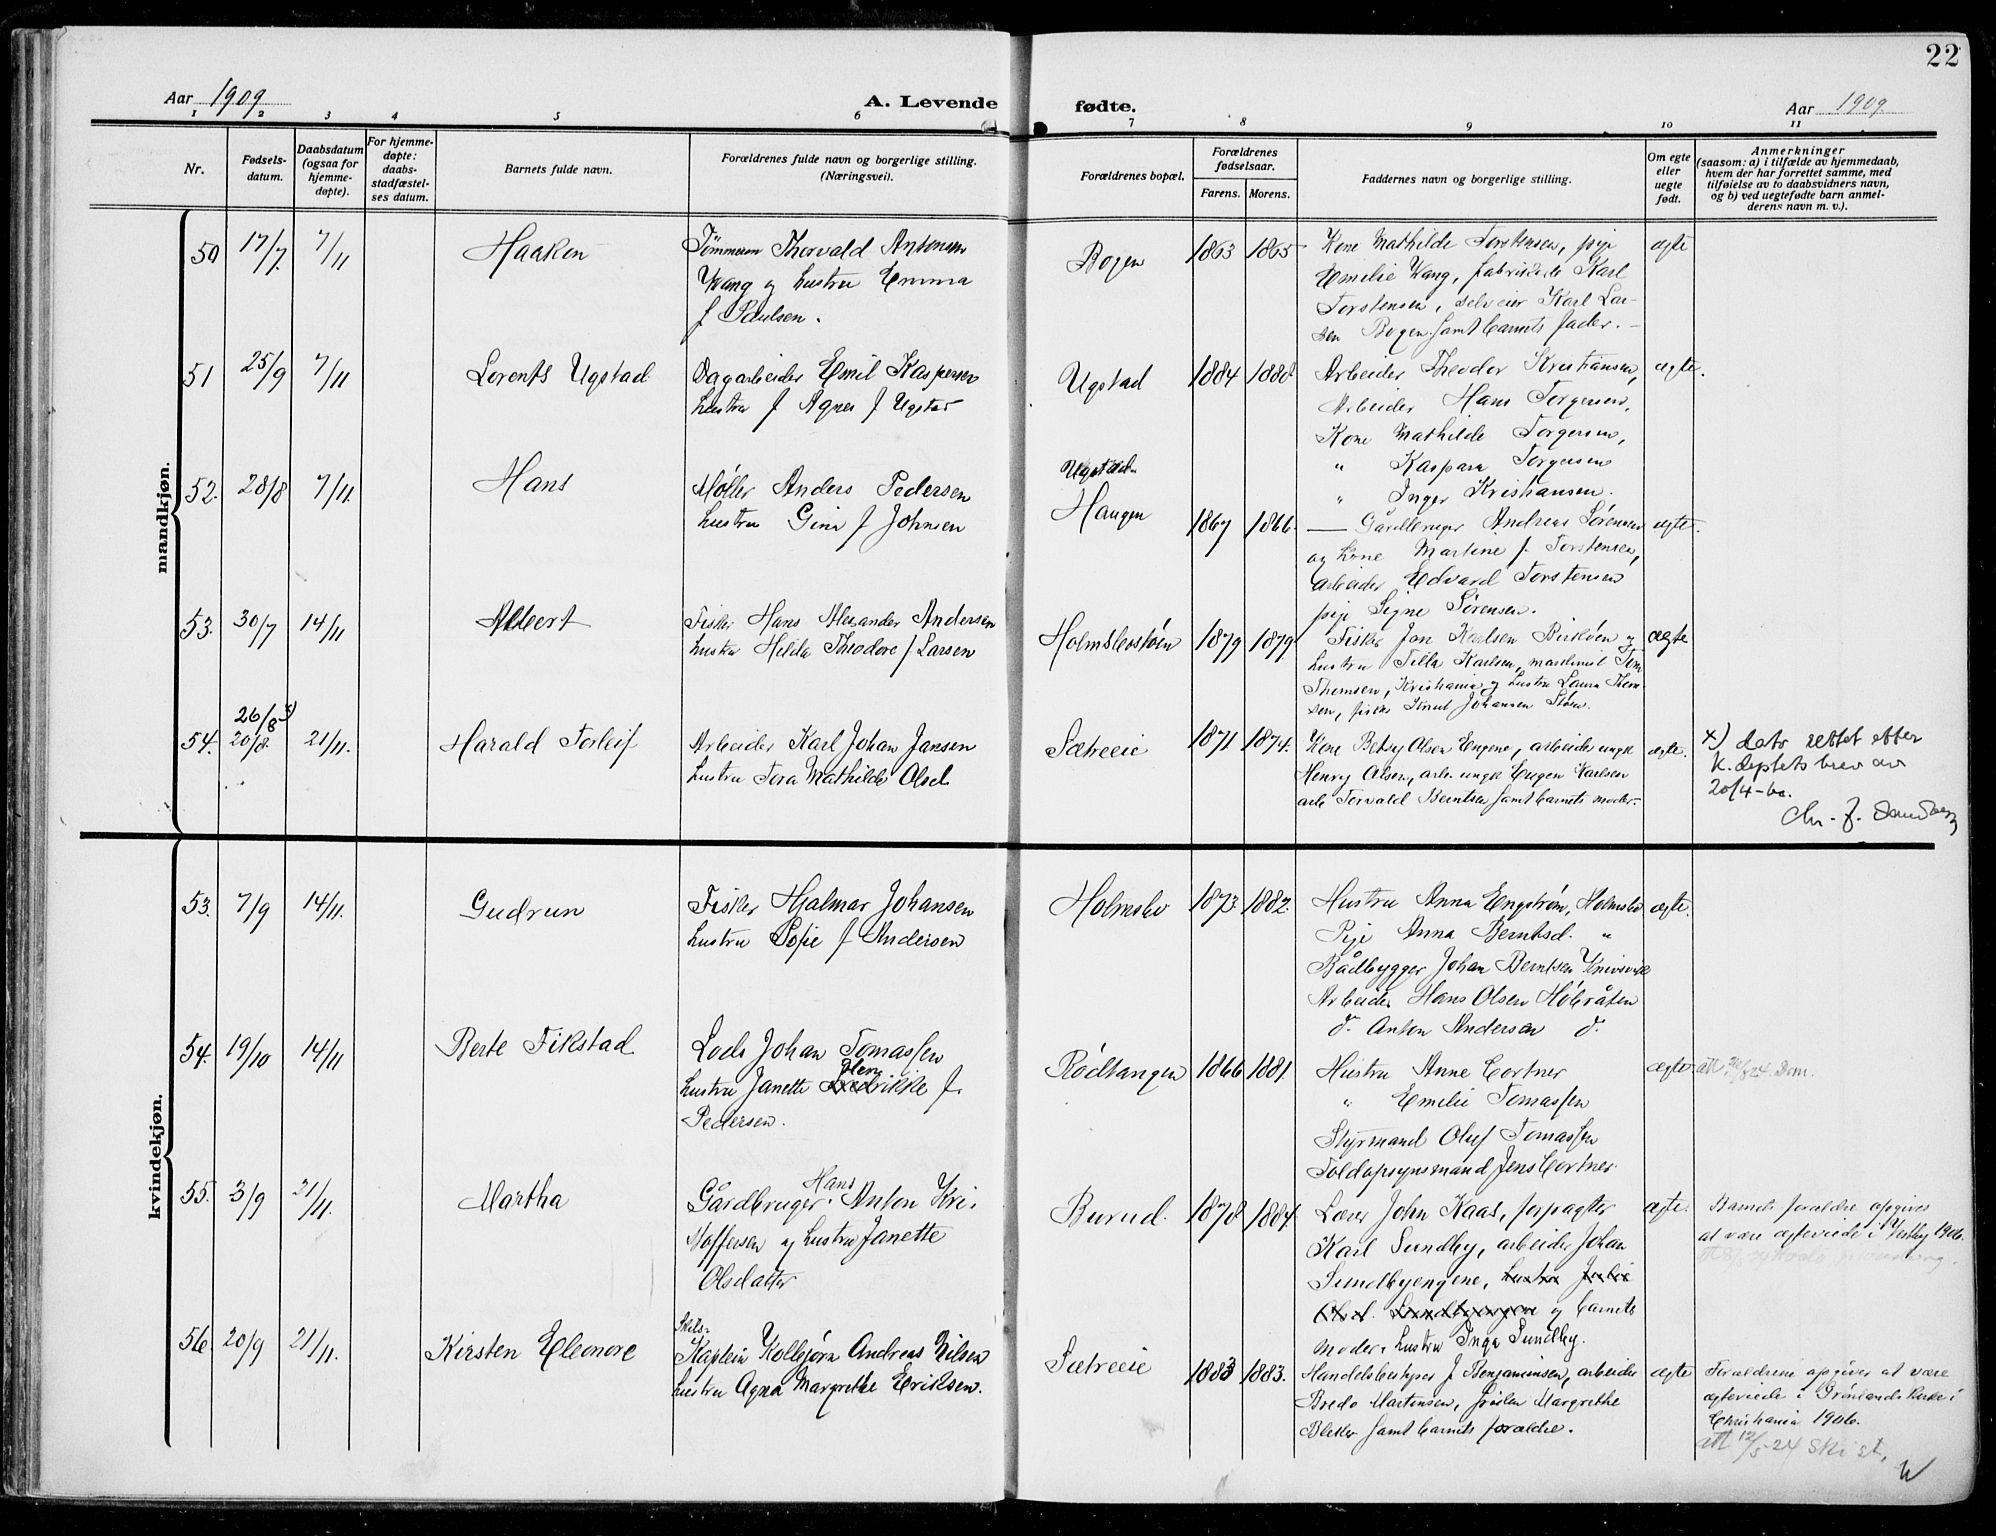 22
Aar 1909
A. Levende fødte.
Aar 1909.
1 2 3 4 5 6 7 8 9 10 11
Nr.
Fødsels-
datum.
Daabsdatum
(ogsaa for
hjemme-
døpte).
For hjemme-
døpte:
daabs-
stadfæstel-
ses datum.
Barnets fulde navn.
Forældrenes fulde navn og borgerlige stilling.
(Næringsvei).
Forældrenes bopæl.
Forældrenes
fødselsaar.
Farens. Morens.
Faddernes navn og borgerlige stilling.
Om egte
eller
uegte
født.
Anmerkninger
(saasom: a) i tilfælde av hjemmedaab,
hvem der har forrettet samme, med
tilføielse av to daabsvidners navn,
og b) ved uegtefødte barn anmel-
derens navn m. v.).
mandkjøn.
50 17/7 7/11 Haakon
Tømmerm Thorvald Antonsen
Wang og hustru Emma
f Paulsen.
Bogen 1863 1865
Kone Mathilde Torstensen, pige
Emilie Wang, fabrikeie Karl
Torstensen, selveier Karl Lar-
sen Bogen samt barnets fader. -
ægte
51 25/9 7/11 Lorents Ugstad
Dagarbeider Emil Kaspersen
hustru f Agnes f Ugstad
Ugstad 1884 1888
Arbeider Theodor Kristiansen,
Arbeider Hans Torgersen,
Kone Mathilde Torgersen,
" Kaspara Torgersen
" Inger Kristiansen.
ægte.
52. 28/8 7/11. Hans
Møller Anders Pedersen
hustru Gina f Johnsen
Ugstad
Haugen 1867 1866.
— Gårdbruger Andreas Sørensen
og kone Martine f. Torstensen,
arbeider Edvard Torstensen
pige Signe Sørensen.
ægte.
53. 30/7 14/11 Albert
Fisker Hans Alexander Andersen
hustru Hilda Theodore f. Larsen
Holmsbostøen 1879 1879
Fisker Jon Karlsen Birkløen og
hustru Tilla Karlsen, maskinist Tom
Thomsen, Kristiania og hustru Laura Thom-
sen, fisker Knut Johansen Støen.
ægte
54. 26/8 x)
20/8. 21/11. Harald Torleif
Arbeider Karl Johan Jansen
hustru Tora Mathilde Olsd.
Sætreeie 1871 1874.
Kone Betsy Olsen Engene, arbeider ungk
Henry Olsen, arb. ungk Eugen Karlsen
arb Torvald Berntsen samt barnets moder.-
ægte.
x) dato rettet etter
K. deptets brev av
20/4-60.
Chr. F.
kvindekjøn.
53. 7/9 14/11. Gudrun
Fisker Hjalmar Johansen
hustru Sofie f Andersen
Holmsbo 1873 1882.
Hustru Anna Engstrøm, Holmsbo
Pige Anna Berntsd. "
Bådbygger Johan Berntsen Knivsvik
Arbeider Hans Olsen Høbråten
d. Anton Andersen d.
ægte.
54. 19/10 14/11 Berte Fikstad
Lods Johan Tomassen
hustru Janette Henrikke f.
Pedersen.
Rødtangen 1866 1881.
Hustru Anne Cortner
" Emilie Tomassen
Styrmand Oluf Tomassen
Toldopsynsmand Jens Cortner
ægte. att 24. Drm.
55. 3/9 21/11. Martha
Gårdbruger Hans Anton Kri-
stoffersen og hustru Janette
Olsdatter
Burud. 1878 1884.
Lærer John Kaas, forpagter
Karl Sundby, arbeider Johan
Sundbyengene, hustru Julie
Olsd. Sundbyengene og barnets
moder, hustru Inga Sundby.
ægte.
Barnets forældre opgives
at være ægteviede i Vestby 1906.
56. 20/9 21/11. Kirsten Eleonore
Skibs-
Kaptein Kolbjørn Andreas Nilsen
hustru Agna Margrethe Eriksen.
Sætreeie 1883 1883.
Handelsbestyrer J. Benjaminsen, arbeider
Bredo Martinsen, frøken Margrethe
Blekker samt barnets forældre.
ægte
Forældrene opgiver at være
ægteviede i Grønlands kirke i
Christiania 1906.
att 12/5-24 Ski st.